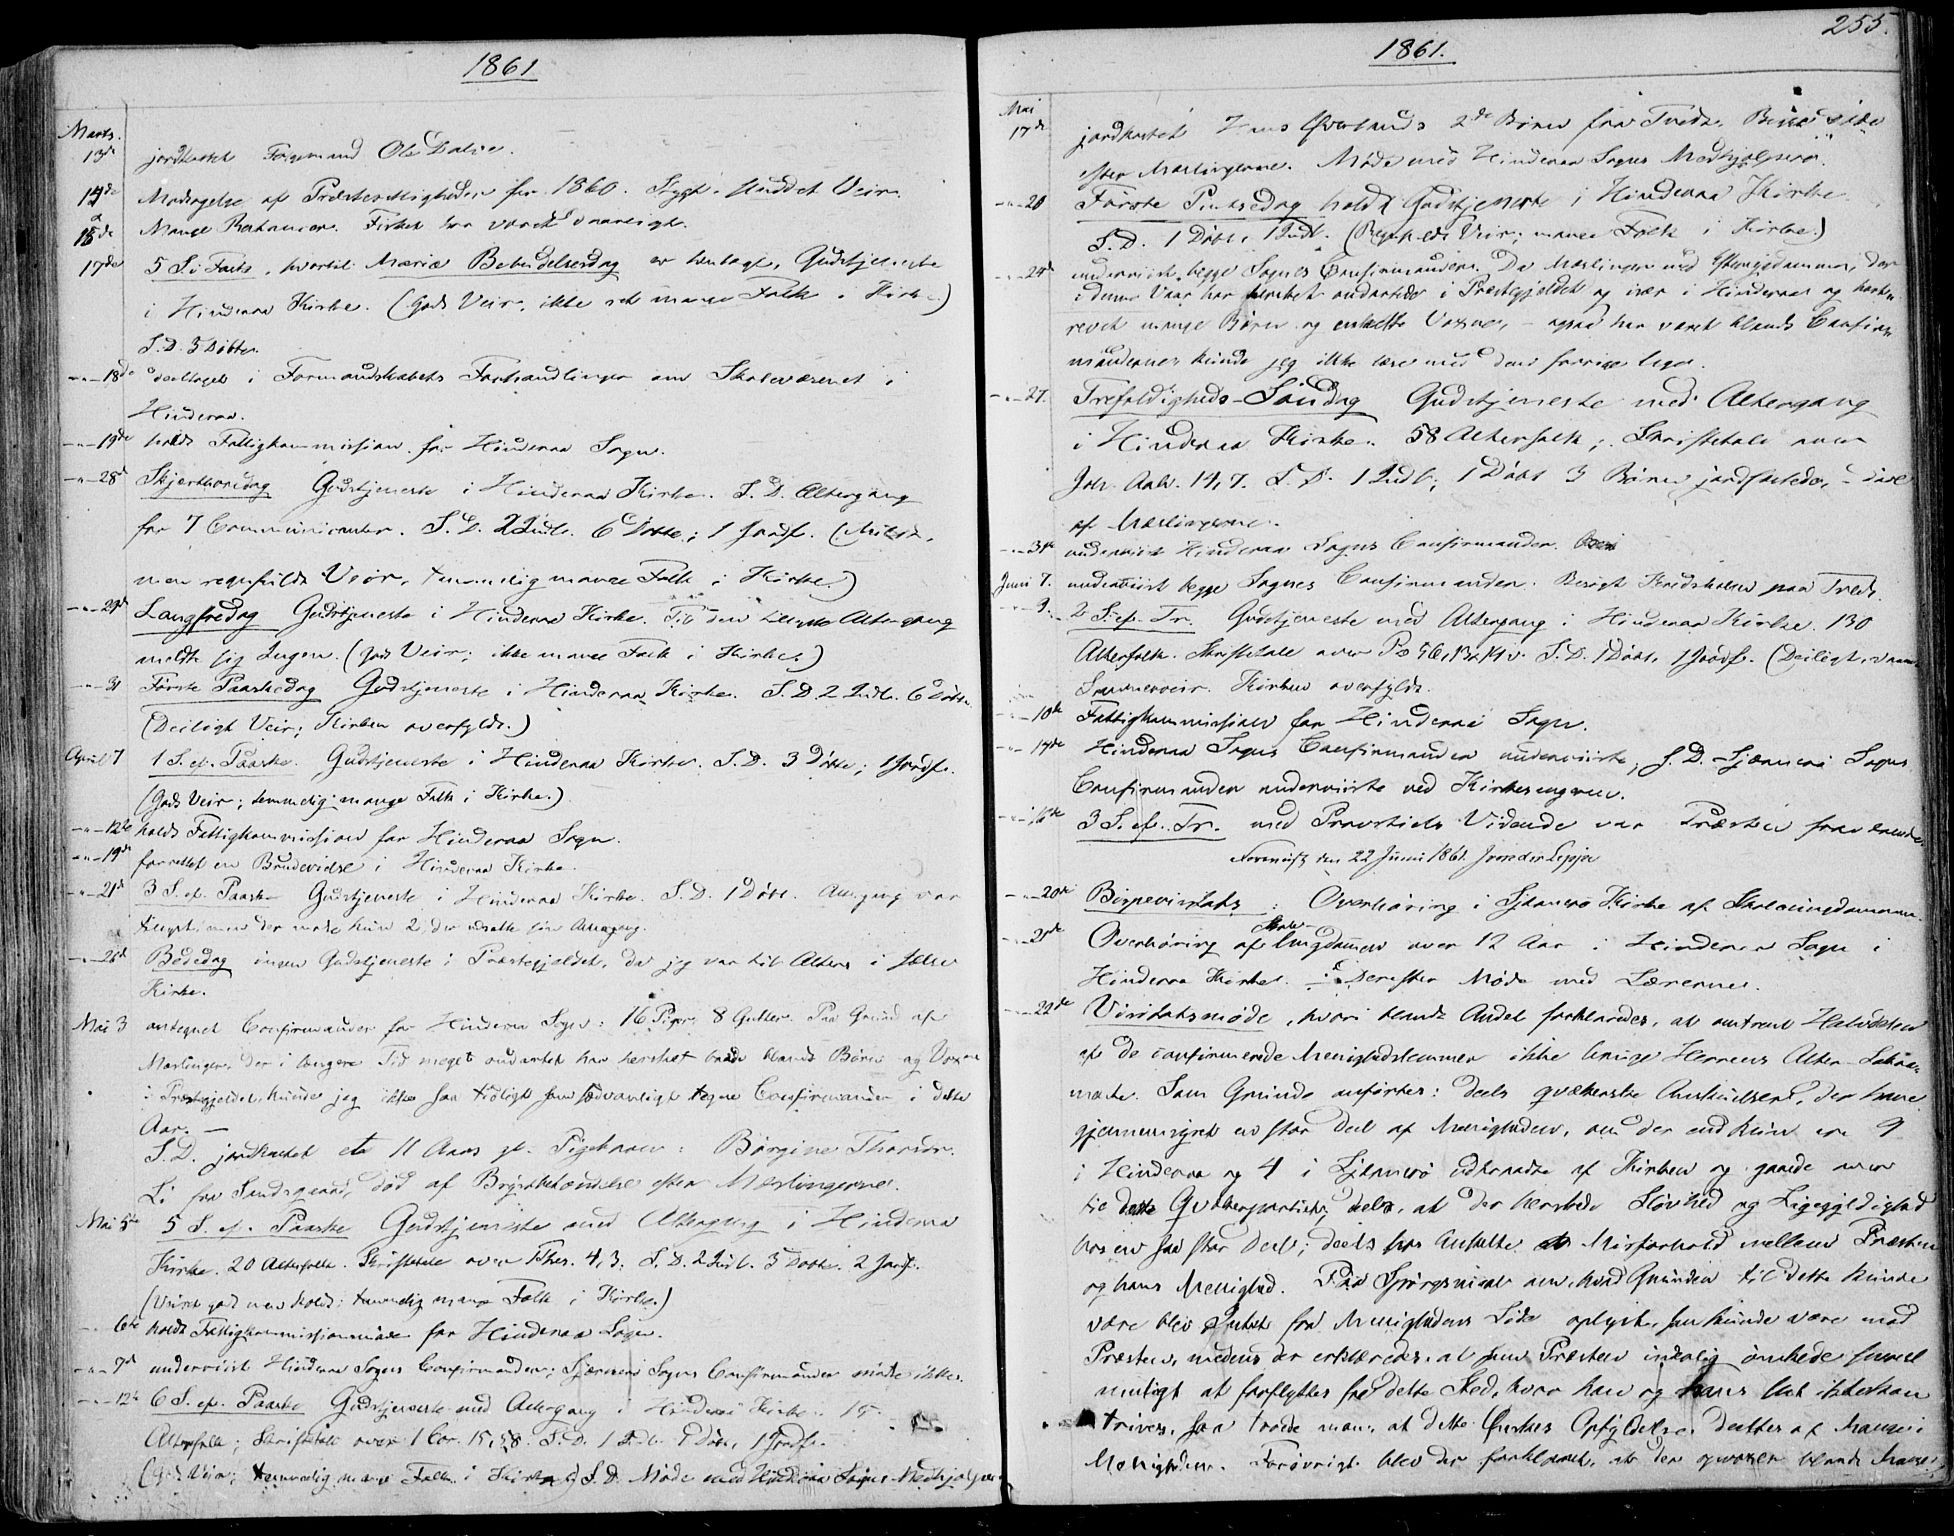 1861
Marts.
13de jordkastet Ole
14de Modtagelse af Præsterettigheder for 1860. Stygt Veir.
a
16de Mange Restancer. Fisket har været
17de 5 S. i Faste, hvortil Mariæ Bebudelsesdag er henlagt, Gudstjeneste
i Hinderaa Kirke. (Godt Veir, ikke ret mange Folk i Kirke)
S. D. 3 Døbte.
-"-18de deeltaget i Formandskabets Forhandlinger om Skolevæsenet i
Hinderaa.
-"-19de holdt Fattigkommission for Hinderaa Sogn.
-"-28de Skjærthorsdag Gudstjeneste i Hinderaa Kirke. S. D. Altergang
for 7 Communicanter. S. D. 2 Indl. 6 Døbte; 1 Jordf. (Mildt,
men regnfuldt Veir, temmelig mange Folk i Kirke.)
-"-29de Langfredag Gudstjeneste i Hinderaa Kirke. Til den Altergang
meldte sig Ingen. (godt Veir; ikke mange Folk i Kirke.)
-"-31 Første Paaskedag Gudstjeneste i Hinderaa Kirke. S. D. 2 Indl. 6 Døbte.
(Deiligt Veir; Kirken overfyldt.)
April 7 1 S. ef. Paaske. Gudstjeneste i Hinderaa Kirke. S. D. 3 Døbte; 1 Jordf.
(Godt Veir; temmelig mange Folk i Kirke.)
-"-12te holdt Fattigkommission for Hinderaa Sogn.
-"-19de forrettet en Brudevielse i Hinderaa Kirke.
-"-21de 3 S. ef. Paaske Gudstjeneste i Hinderaa Kirke. S. D. 1 Døbt. Altergang var
men der mødte kun 2, der udsatte sin Altergang.
-"-26de Bededag ingen Gudstjeneste i Præstegjeldet, da jeg var til Alters i Jelse
Kirke.
Mai 3 antegnet Confirmander for Hinderaa Sogn: 16 Piger, 8 Gutter. Paa Grund af
Mæslinger, der i længere Tid meget ondartet har hersket baade blandt Børn og Voxne
i Præstegjeldet, kunde jeg ikke saa tidligt som sædvanligt tegne Confirmander i dette
Aar. —
S. D. jordkastet et 11 Aars gl. Pigebarn: Børgine Thorsdr.
Li fra Sandsgaard, død af Brystbetændelse efter Mæslingerne.
Mai 5te 5 S. ef. Paaske Gudstjeneste med Altergang i Hinderaa
Kirke. 20 Alterfolk. Skriftetale over 1 Thes. 4,3. S. D. 2 Indl. 3 Døbte. 2 Jordf.
(Veiret godt men koldt; temmelig mange Folk i Kirke.)
6te holdt Fattigkommissionsmøde for Hinderaa Sogn.
-"-7de underviist Hinderaa Sogns Confirmander; Sjærnerø Sogns Confirmander mødte ikke.
-"-12te 6 S. ef. Paaske Gudstjeneste med Altergang i Hinderaa Kirke. 15
Alterfolk; Skriftetale over 1 Cor. 15,58. S. D. 1 Indl. 1 Døbt, 1 Jordf.
(Godt Veir; temmelig mange Folk i Kirke.) S. D. Møde med Hinderaa Sogns Medhjælpere
255.
1861.
Mai
17de jordkastet Hans Øverlands 2de Børn fra Tveit. døde
efter Mæslingerne. Møde med Hinderaa Sogns Medhjælpere.
-"-20 Første Pintsedag holdt Gudstjeneste i Hinderaa Kirke
S. D. 1 Døbt, 1 Indl. (Regnfuldt Veir; mange Folk i Kirke.)
-"-24de underviist begge Sognes Confirmander. Da Mæslinger med Eftersygdomme, der
i denne Vaar har hersket ondartede i Præstegjeldet og især i Hinderaa og bort-
revet mange Børn og enkelte Voxne, – ogsaa har været blandt Confir-
mandernes kunde jeg ikke læse med dem forrige Uge.
-"-27. Trefoldigheds-Søndag Gudstjeneste med Altergang
i Hinderaa Kirke. 58 Alterfolk; Skriftetale over
Joh. Aab. 14,7. S. D. 1 Indl; 1 Døbt 3 Børn jordfæstede, - døde
af Mæslingerne.
-"-31te underviist Hinderaa Sogns Confirmander.
Juni 7. underviist begge Sognes Confirmander. Besøgt Kredsskolen paa Tveit.
-"-9. 2 S. ef. Tr. Gudstjeneste med Altergang i Hinderaa Kirke. 130
Alterfolk. Skriftetale over Ps 56,13,14 v. S. D. 1 Døbt, 1 Jordf. (Deiligt, varmt
Sommerveir. Kirken overfyldt.
-"-10de Fattigkommission for Hinderaa Sogn.
-"-14de Hinderaa Sogns Confirmander underviiste; S. D. Sjærnerø Sogns
Confirmander underviiste ved Kirkesangeren.
-"-16de 3 S. ef. Tr. med Provstiets Vidende var Præsten fraværende.
den 22 Juni 1861.
-"-20de Bispevisitats: Overhøring i Sjærnerø Kirke af Skoleungdommen.
-"-21de Overhøring af Skole-Ungdommen over 12 Aar i Hinderaa Sogn i
Hinderaa Kirke. – Derefter Møde med Lærerne.
-"-22de Visitatsmøde, hvori blandt Andet forklaredes, at omtrent Halvdelen
af de confirmerede Menighedslemmer ikke bruge Herrens Alter-Sakra-
mente. Som Grunde anførtes: deels qvækerske Anskuelser, der have
gjennemsyret en stor Deel af Menigheden, om der end kun ere 9
i Hinderaa og 4 i Sjærnerø udtraadte af Kirken og gaaede over
til dette Qvækerpartiet; deels, at der herskede Sløvhed og Ligegyldighed
hos en saa stor Deel; deels hos Enkelte Misforhold mellem Præsten
og hans Menighed. Paa Spørgsmaal om, hvad Grunden til dette kunde
være blev Intet fra Menighedens Side oplyst, som kunde være mod
Præsten, medens der erklæredes, at som Præsten inderlig ønskede snarest
muligt at forflyttes fra dette Sted, hvor han og hans Huus ikke kan
trives, saa troede man, at dette Ønskes Opfyldelse deeltes af Mange i
Menigheden. Forøvrigt blev der forklaret, at der opvoxer blandt Mange i